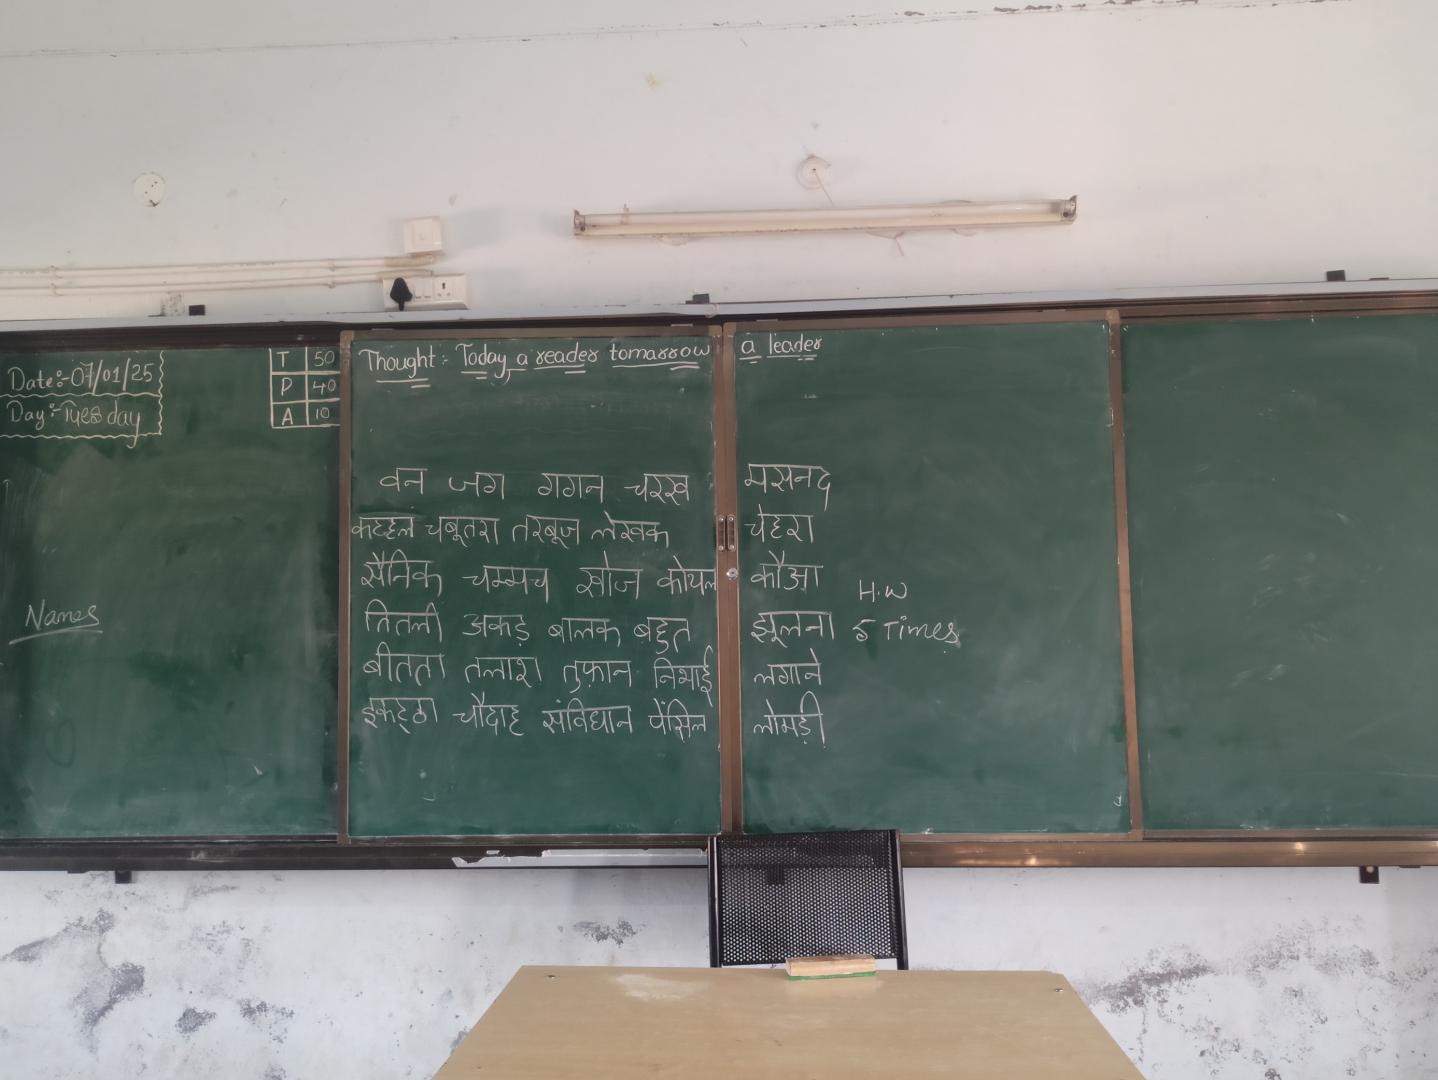 Date:-07/01/25
Day:-Tuesday
T 50
P 40
A 10
Thought:- Today a reader tomarrow a leader
वन जग गगन चरख मसनद
कटहल चबूतरा तरबूज लेखक चेहरा
सैनिक चम्मच खोज कोयल कौआ
H.W
तितली अकड़ बालक बहुत झूलना 5 Times
Names
बीतता तलाश तुफ़ान निभाई लगाने
इकट्ठा चौदाह संविधान पेंसिल लोमड़ी